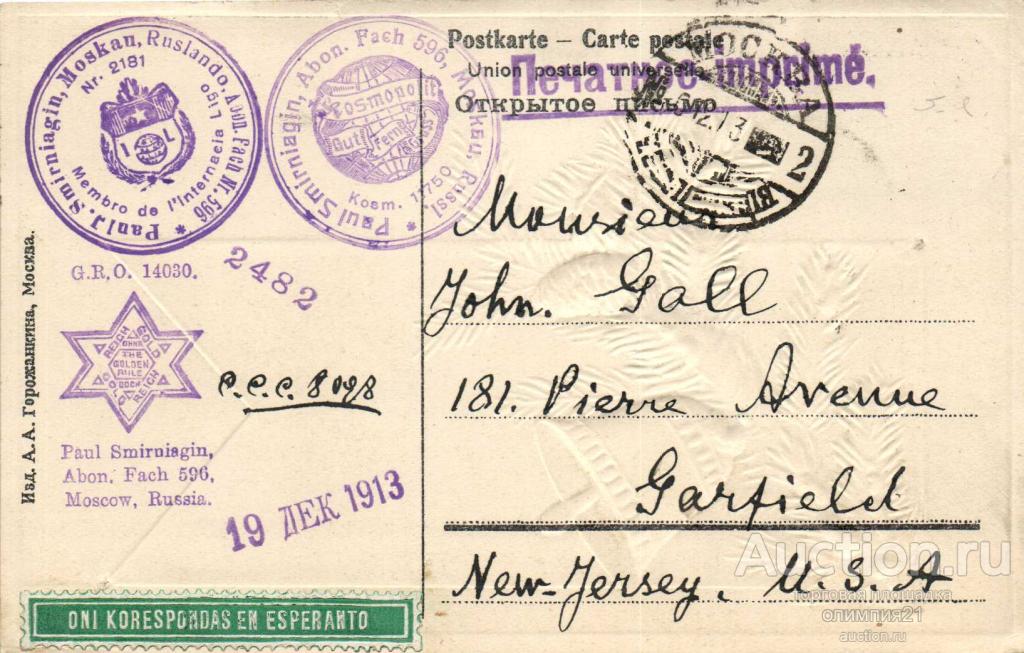 Postkarte – Carte postale
Union postale universelle
Открытое письмо.
Печатное. Imprimé.
МОСКВА
12.13
2
Paul J. Smirniagin, Moskau, Ruslando, Abon. Fach Nr. 596 *
Nr. 2181
I L
Membro de l'Internacia Ligo
Paul Smirniagin, Abon. Fach 596, Moskau, Russl. *
Kosmopolit
Gut Fernb
Kosm. 17750
G.R.O. 14030.
2482
REICH OHNE GOLD
THE GOLDEN RULE
GOLD DOCH REICH
C.C.C. 8098
Paul Smirniagin,
Abon. Fach 596,
Moscow, Russia.
19 ДЕК 1913
Изд. А. А. Горожанкина, Москва.
Monsieur
John. Gall
181. Pierre Avenue
Garfield
New-Jersey. U. S. A
ONI KORESPONDAS EN ESPERANTO
Auction.ru
торговая площадка
олимпия21
auction.ru